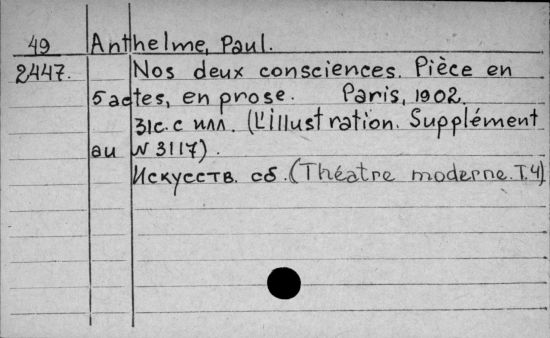 49 Anthelme, Paul.
2447. Nos deux consciences. Pièce en
5 actes, en prose. Paris, 1902.
31с. с илл. (L'illustration. Supplément
au N 3117).
Искусств. сб. (Théatre moderne. T.4)